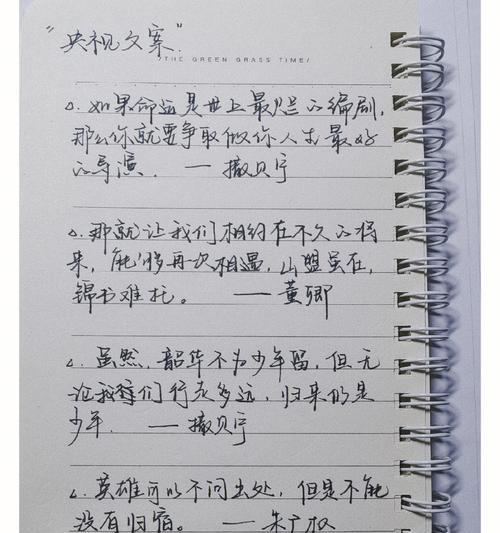 “央视文案”
/THE GREEN GRASS TIME/
△. 如果命运是世上最烂的编剧,
那么你就要争取做你人生最好
的导演. —— 撒贝宁
△. 那就让我们相约在不久的将
来, 能够再次相遇, 山盟虽在,
锦书难托。 —— 董卿
△. 虽然, 韶华不为少年留, 但无
论我们行走多远, 归来仍是
少年. —— 撒贝宁
△. 英雄可以不问出处, 但是不能
没有归宿。 —— 朱广权